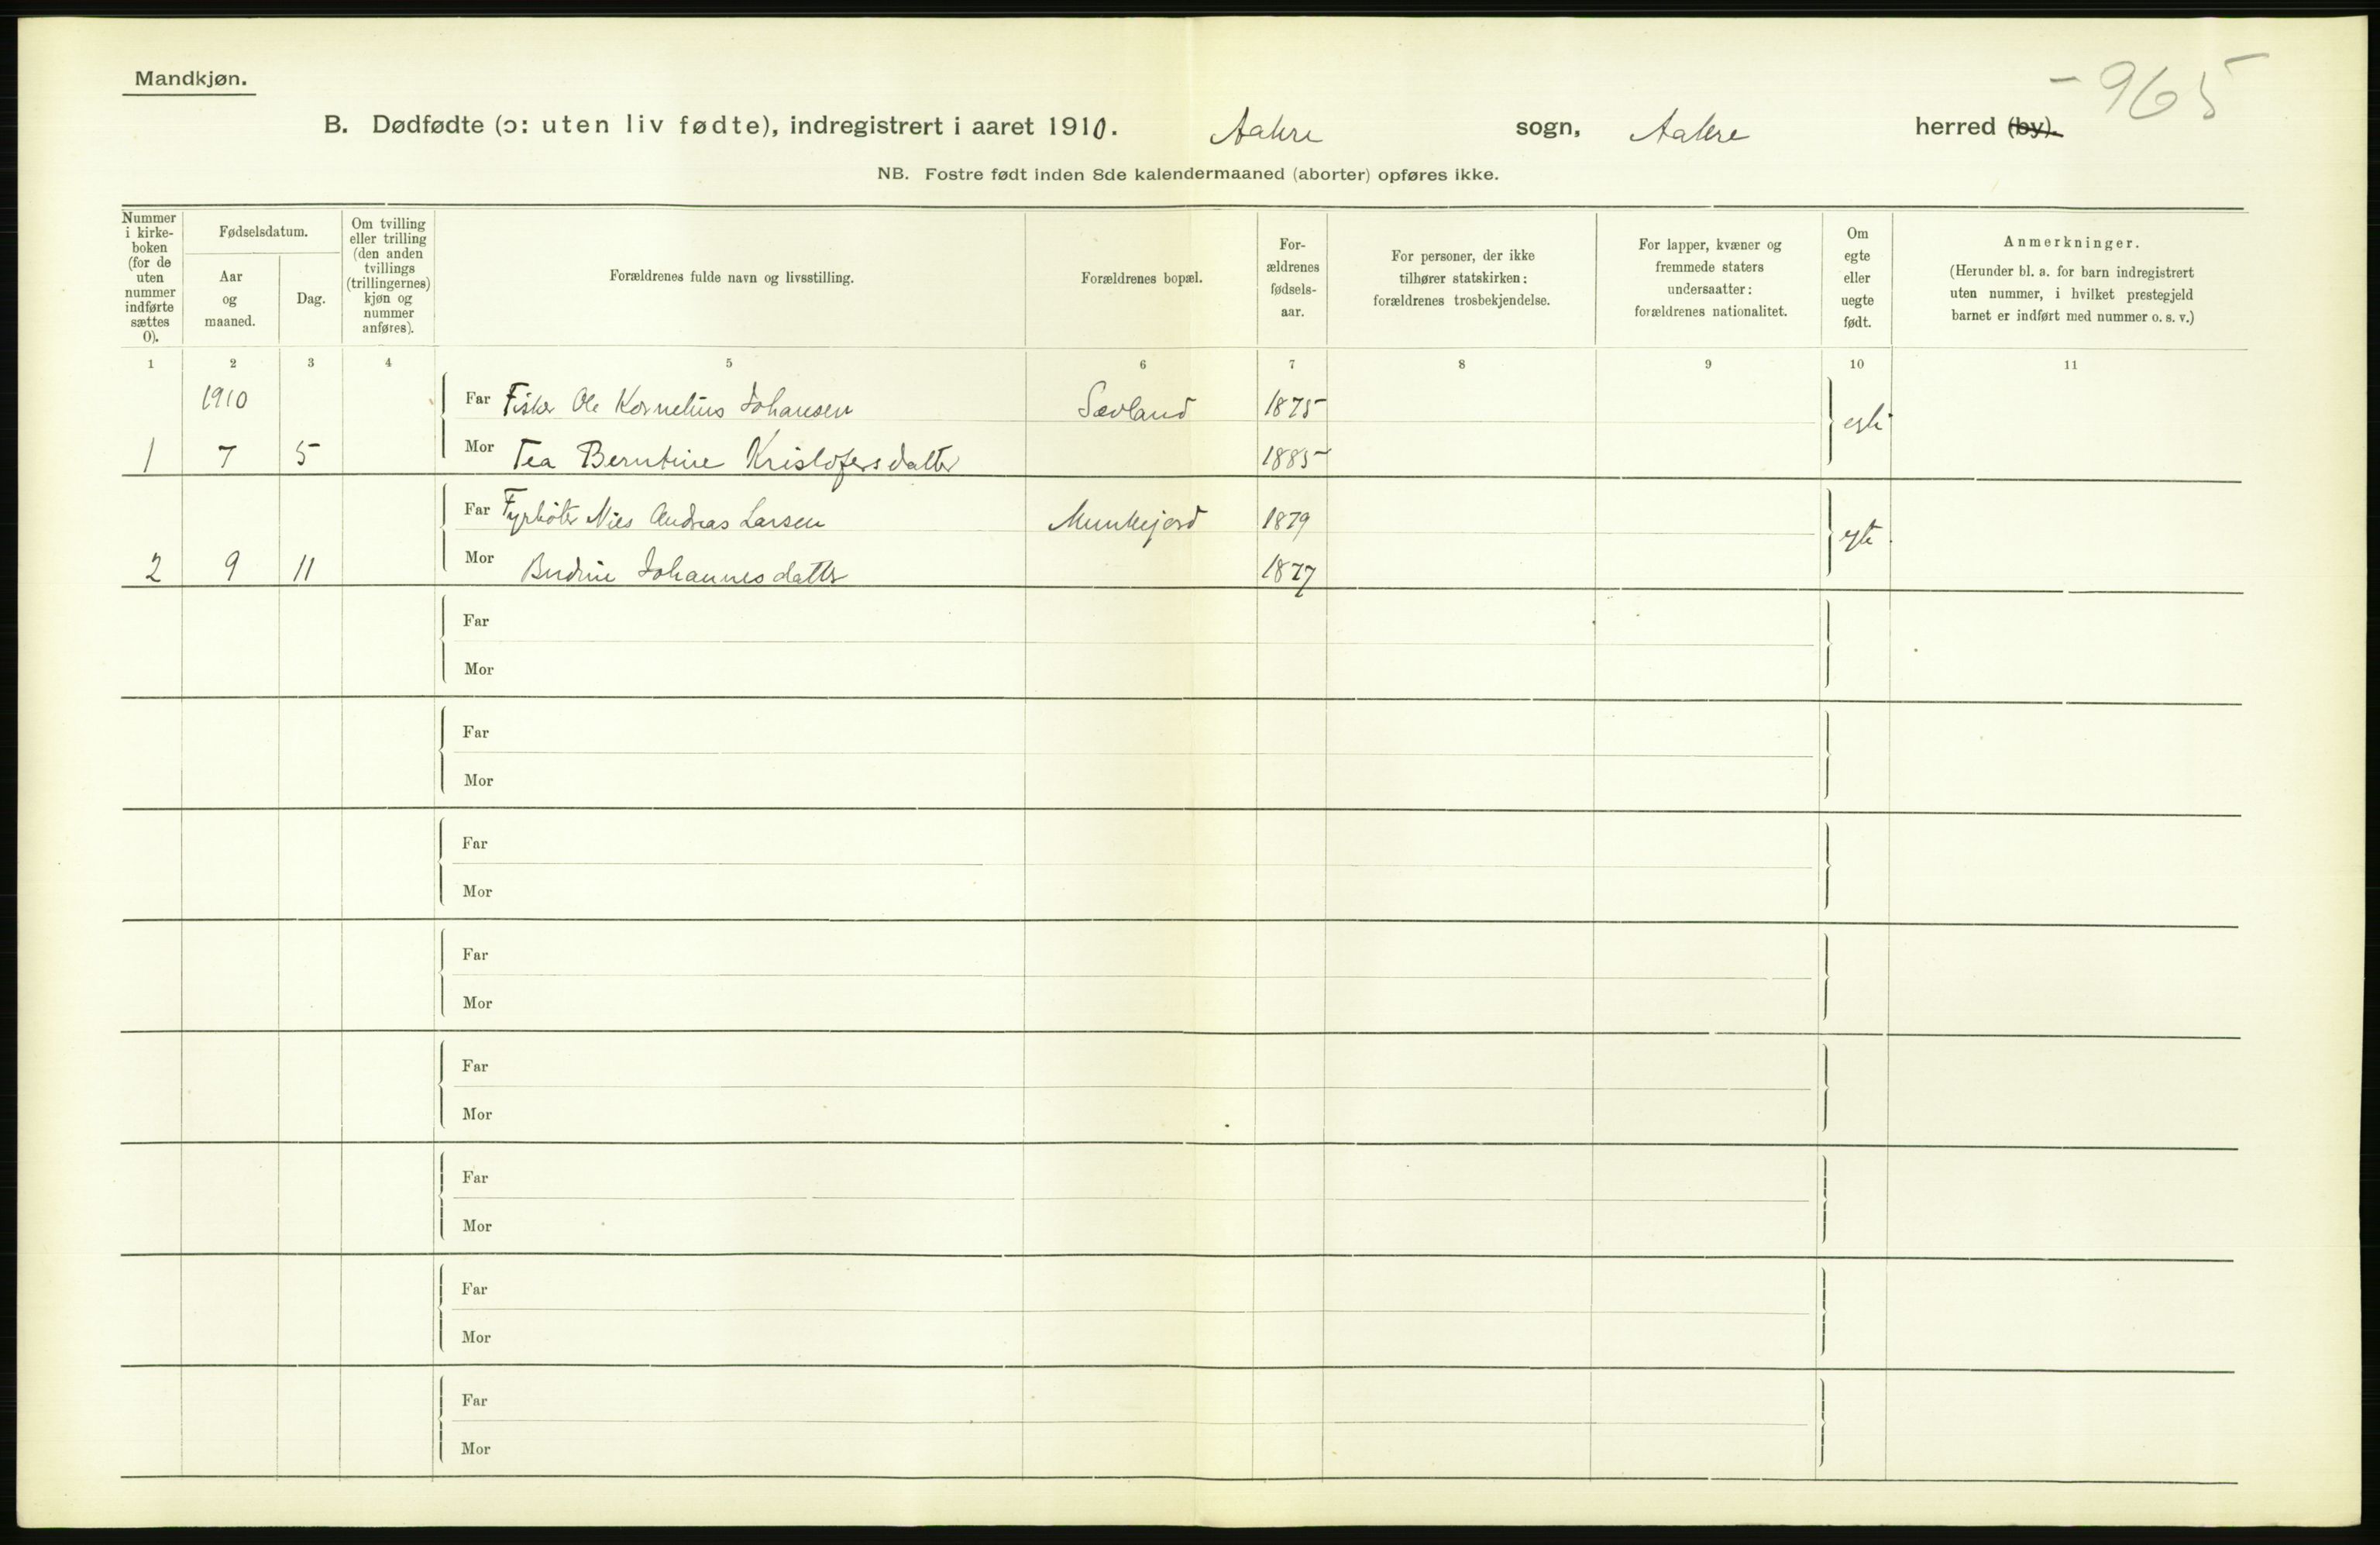 Mandkjøn.
- 965
B. Dødfødte (ɔ: uten liv fødte), indregistrert i aaret 1910. Aakre sogn, Aakre herred (by).
NB. Fostre født inden 8de kalendermaaned (aborter) opføres ikke.
Nummer
i kirke-
boken
(for de
uten
nummer
indførte
sættes
0).
Fødselsdatum.
Aar
og
maaned.
Dag.
Om tvilling
eller trilling
(den anden
tvillings
(trillingernes)
kjøn og
nummer
anføres).
Forældrenes fulde navn og livsstilling.
Forældrenes bopæl.
For-
ældrenes
fødsels-
aar.
For personer, der ikke
tilhører statskirken:
forældrenes trosbekjendelse.
For lapper, kvæner og
fremmede staters
undersaatter:
forældrenes nationalitet.
Om
egte
eller
uegte
født.
Anmerkninger.
(Herunder bl. a. for barn indregistrert
uten nummer, i hvilket prestegjeld
barnet er indført med nummer o. s. v.)
1 2 3 4 5 6 7 8 9 10 11
1910 Far Fisker Ole Kornelius Johansen Sævland 1875 egte
1 7 5 Mor Tea Berntine Kristofersdatter 1885
Far Fyrbøter Nils Andreas Larsen Munkejord 1879 egte
2 9 11 Mor Johannesdatter 1877
Far
Mor
Far
Mor
Far
Mor
Far
Mor
Far
Mor
Far
Mor
Far
Mor
Far
Mor